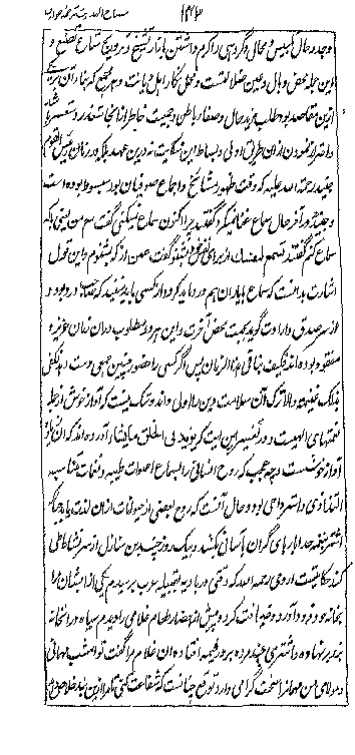 ۱۴۳
وجد و حال تلبیس و محال و گروهی را کرم داشتن بازار تشیخ و ترویج متاع تصنع و
این جمله محض وبال و عین ضلالت است و محل انکار اهل دیانت و هر مجمع که بناء آن بر یکی
ازین مقاصد بود طلب مزید حال و صفاء باطن و جمعیت خاطر از آنجا متعذر و متعسر باشد
و احتراز نمودن از آن طریق اولی و بساط این شکایت نه درین عهد بلکه در زمان رئیس القوم
جنید رحمة الله علیه که وقت ظهور مشایخ و اجماع صوفیان بود مبسوط بوده است
و جنید در آخر حال سماع غنا نمیکرد گفتند چرا اکنون سماع نمیکنی گفت مع من یعنی باکه
سماع کنم گفتند تسمع لنفسک از برای نفس خود بشنو گفت عمن از که بشنوم و این قول
اشارت بدانست که سماع با یاران هم درد باید کرد و از کسی باید شنید که صاحب درد بود و
از سر صدق و ارادت گوید بجهت محض آخرت و این هر دو مطلوب در آن زمان عزیز و
مفقود بوده اند فکیف بباقی هذا الزمان پس اگر کسی را حضور چنین جمعی دست دهد
غنیمة و الا ترک آن سلامت دین را اولی و اندر شک نیست که آواز خوش از جمله
نعمتهای الهیست و در تفسیر این آیت که یزید فی الخلق ما یشاء آورده اند که آن
آواز خوشست و چه عجب که روح انسانی را بسماع اصوات طیبه و نغمات متناسبه
التذاذی و استرواحی بود و حال آنست که روح بعضی از حیوانات از آن لذت یابد چنانکه
اشتر بنغمه حدا بارهای گران بآسانی بکشد و بیک روز چندین منازل از سر نشاط طی
کند حکایتست از دقی رحمه الله که وقتی در بادیه بقبیله عرب برسیدم یکی از ایشان مرا
بخانه خود فرود آورد و ضیافت کرد و پیش از احضار طعام غلامی را دیدم سیاه در آن خانه
بند بر نهاده و اشتری چند مرده بر در خیمه افتاده آن غلام مرا گفت تو امشب مهمانی
و مولای من مهمانرا سخت گرامی دارد توقع چنانست که شفاعت کنی تا مرا ازین بند خلاص دهد